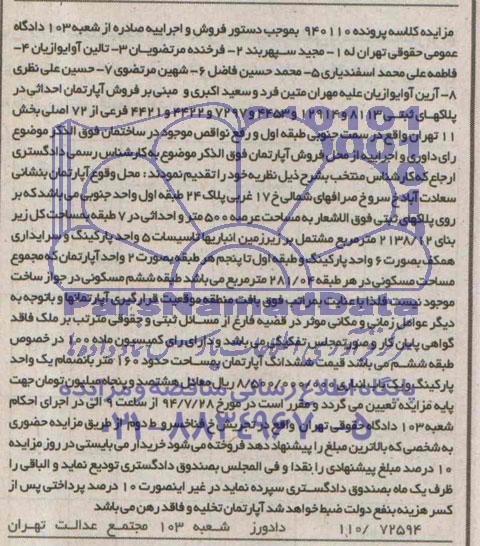 مزایده کلاسه پرونده ۹۴۰۱۱۰ بموجب دستور فروش و اجراییه صادره از شعبه ۱۰۳ دادگاه
عمومی حقوقی تهران له ۱- مجید سپهربند ۲- فرخنده مرتضویان ۳- تالین آوایوازیان ۴-
فاطمه علی محمد اسفندیاری ۵- محمد حسین فاضل ۶- شهین مرتضوی ۷- حسین علی نظری
۸- آرین آوایوازیان علیه مهران متین فرد و سعید اکبری و مبنی بر فروش آپارتمان احداثی در
پلاکهای ثبتی ۸۱۱۳ و ۱۲۹۱۴ و ۴۴۵۳ و ۷۲۹۷ و ۴۴۲۲ و ۴۴۲۱ فرعی از ۷۲ اصلی بخش
۱۱ تهران واقع در سمت جنوبی طبقه اول و رفع نواقص موجود در ساختمان فوق الذکر موضوع
رای داوری و اجراییه از محل فروش آپارتمان فوق الذکر موضوع به کارشناس رسمی دادگستری
ارجاع که کارشناس منتخب بشرح ذیل نظریه خود را تقدیم نمودند: محل وقوع آپارتمان بنشانی
سعادت آباد خ سرو خ صرافهای شمالی خ ۱۷ غربی پلاک ۲۴ طبقه اول واحد جنوبی می باشد که بر
روی پلاکهای ثبتی فوق الاشعار به مساحت عرصه ۵۰۰ متر و احداثی در ۷ طبقه بمساحت کل زیر
بنای ۲۱۳۸/۶۲ مترمربع مشتمل بر زیرزمین انباریها تاسیسات ۵ واحد پارکینگ و سرایداری
همکف بصورت ۶ واحد پارکینگ و طبقه اول تا پنجم هر طبقه بصورت ۲ واحد آپارتمان که مجموع
مساحت مسکونی در هر طبقه ۲۸۱/۰۴ مترمربع می باشد طبقه ششم مسکونی در جواز ساخت
موجود نیست فلذا با عنایت بمراتب فوق بافت منطقه موقعیت قرارگیری آپارتمانها و باتوجه به
دیگر عوامل زمانی و مکانی موثر در قضیه فارغ از مسائل ثبتی و حقوقی مترتب بر ملک فاقد
گواهی پایان کار و صورتمجلس تفکیکی می باشد و دارای رای کمیسیون ماده ۱۰۰ در خصوص
طبقه ششم می باشد قیمت ششدانگ آپارتمان بمساحت حدود ۱۶۰ متر بانضمام یک واحد
پارکینگ و یکباب انباری ۸/۵۰۰/۰۰۰/۰۰۰ ریال معادل هشتصد و پنجاه میلیون تومان جهت
پایه مزایده تعیین می گردد و مقرر است در مورخ ۹۴/۷/۲۸ از ساعت ۹ الی در اجرای احکام
شعبه ۱۰۳ دادگاه حقوقی تهران واقع در تجریش خ فناخسرو ط دوم از طریق مزایده حضوری
به شخصی که بالاترین مبلغ را پیشنهاد دهد فروخته می شود خریدار می بایستی در روز مزایده
۱۰ درصد مبلغ پیشنهادی را نقدا و فی المجلس بصندوق دادگستری تودیع نماید و الباقی را
ظرف یک ماه بصندوق دادگستری سپرده نماید در غیر اینصورت ۱۰ درصد پرداختی پس از
کسر هزینه بنفع دولت ضبط خواهد شد آپارتمان تخلیه و فاقد رهن می باشد
۱۱۰/ ۷۲۵۹۴ دادورز شعبه ۱۰۳ مجتمع عدالت تهران
ParsNamadData
پایگاه اطلاع رسانی مناقصه و مزایده
۰۲۱-۸۸۳۴۹۶۷۰-۵